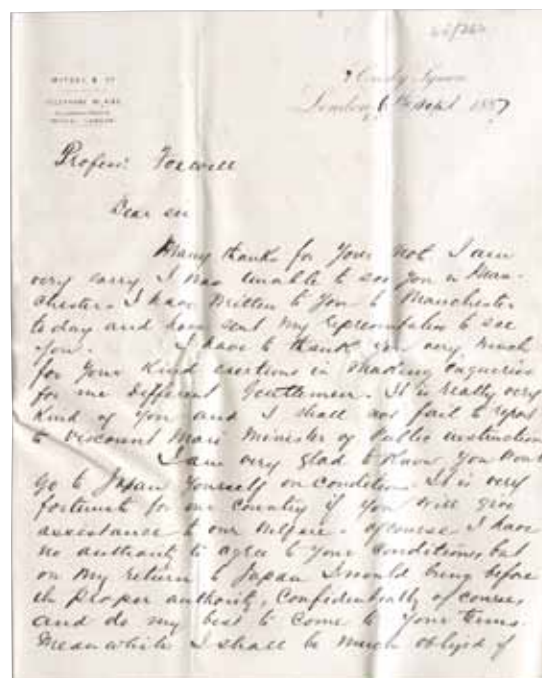 London 6th Sept 1887
Profesr. Foxwell
Dear sir
Many thanks for your not. I am
very sorry I was unable to see you in Man-
chester. I have written to you to Manchester
today and have sent my representative to see
you. I have to thank you very much
for your kind exertions in making enqueries
for me different gentlemen. It is really very
kind of you and I shall not fail to report
to Viscount Mori Minister of Public instruction
I am very glad to know you wont
go to Japan yourself on condition. It is very
fortunate for our country if you will give
assistance to our . of course I have
no authority to agree to your conditions but
on my return to Japan I would bring before
the proper authority, Confidentially of course
and do my best to come to your terms.
Meanwhile I shall be much obliged if